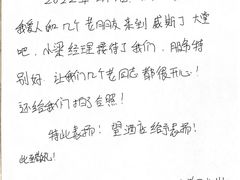 我爱人和几个老朋友来到威斯丁大堂
吧，小梁经理接待了我们，服务特
别好，让我们几个老同志都很开心！
还给我们拍了合照！
特此表扬！望酒店给予表扬！
此致敬礼！